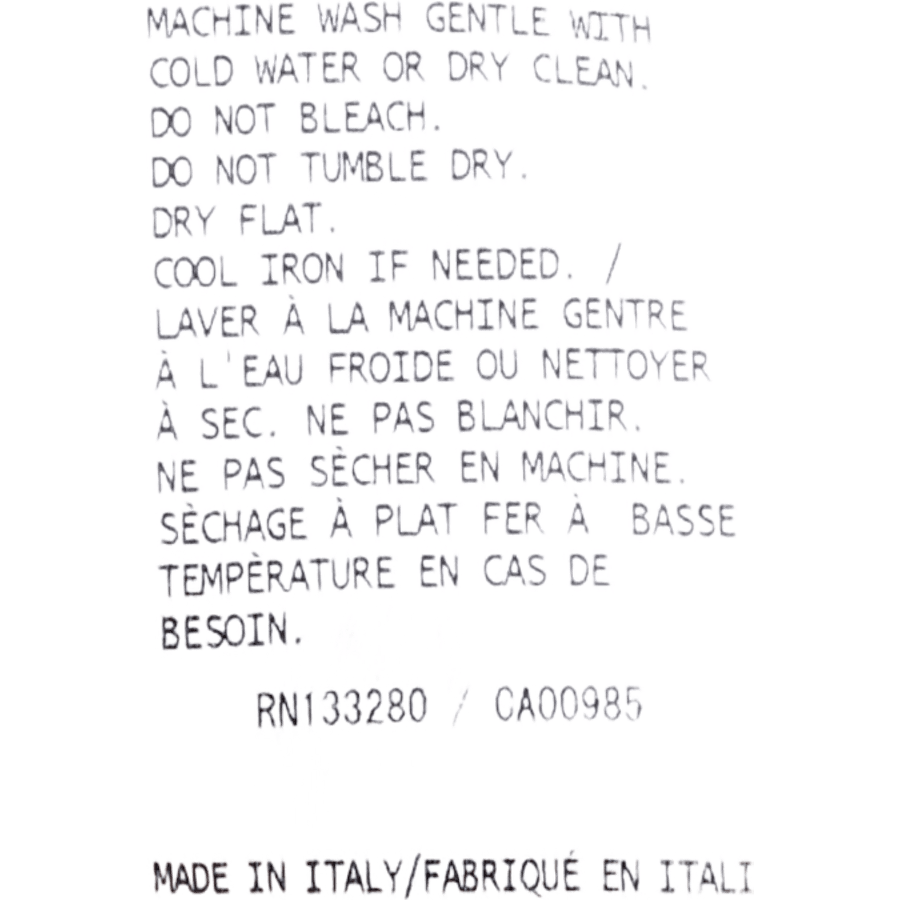 MACHINE WASH GENTLE WITH
COLD WATER OR DRY CLEAN.
DO NOT BLEACH.
DO NOT TUMBLE DRY.
DRY FLAT.
COOL IRON IF NEEDED. /
LAVER À LA MACHINE GENTRE
À L'EAU FROIDE OU NETTOYER
À SEC. NE PAS BLANCHIR.
NE PAS SÈCHER EN MACHINE.
SÈCHAGE À PLAT FER À BASSE
TEMPÈRATURE EN CAS DE
BESOIN.
RN133280 / CA00985
MADE IN ITALY/FABRIQUÉ EN ITALI